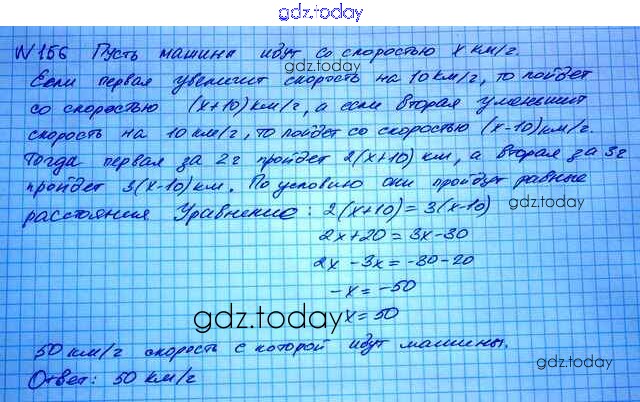 gdz.today
N156 Пусть машины идут со скоростью x км/г.
gdz.today
Если первая увеличит скорость на 10 км/г, то пойдет
со скоростью (x+10) км/г, а если вторая уменьшит
скорость на 10 км/г, то пойдет со скоростью (x-10) км/г.
Тогда первая за 2г пройдет 2(x+10) км, а вторая за 3г
пройдет 3(x-10) км. По условию они пройдут равные
расстояния Уравнение: 2(x+10) = 3(x-10)
gdz.today
2x+20 = 3x-30
2x - 3x = -30-20
-x = -50
x = 50
gdz.today
50 км/г скорость с которой идут машины.
gdz.today
Ответ: 50 км/г